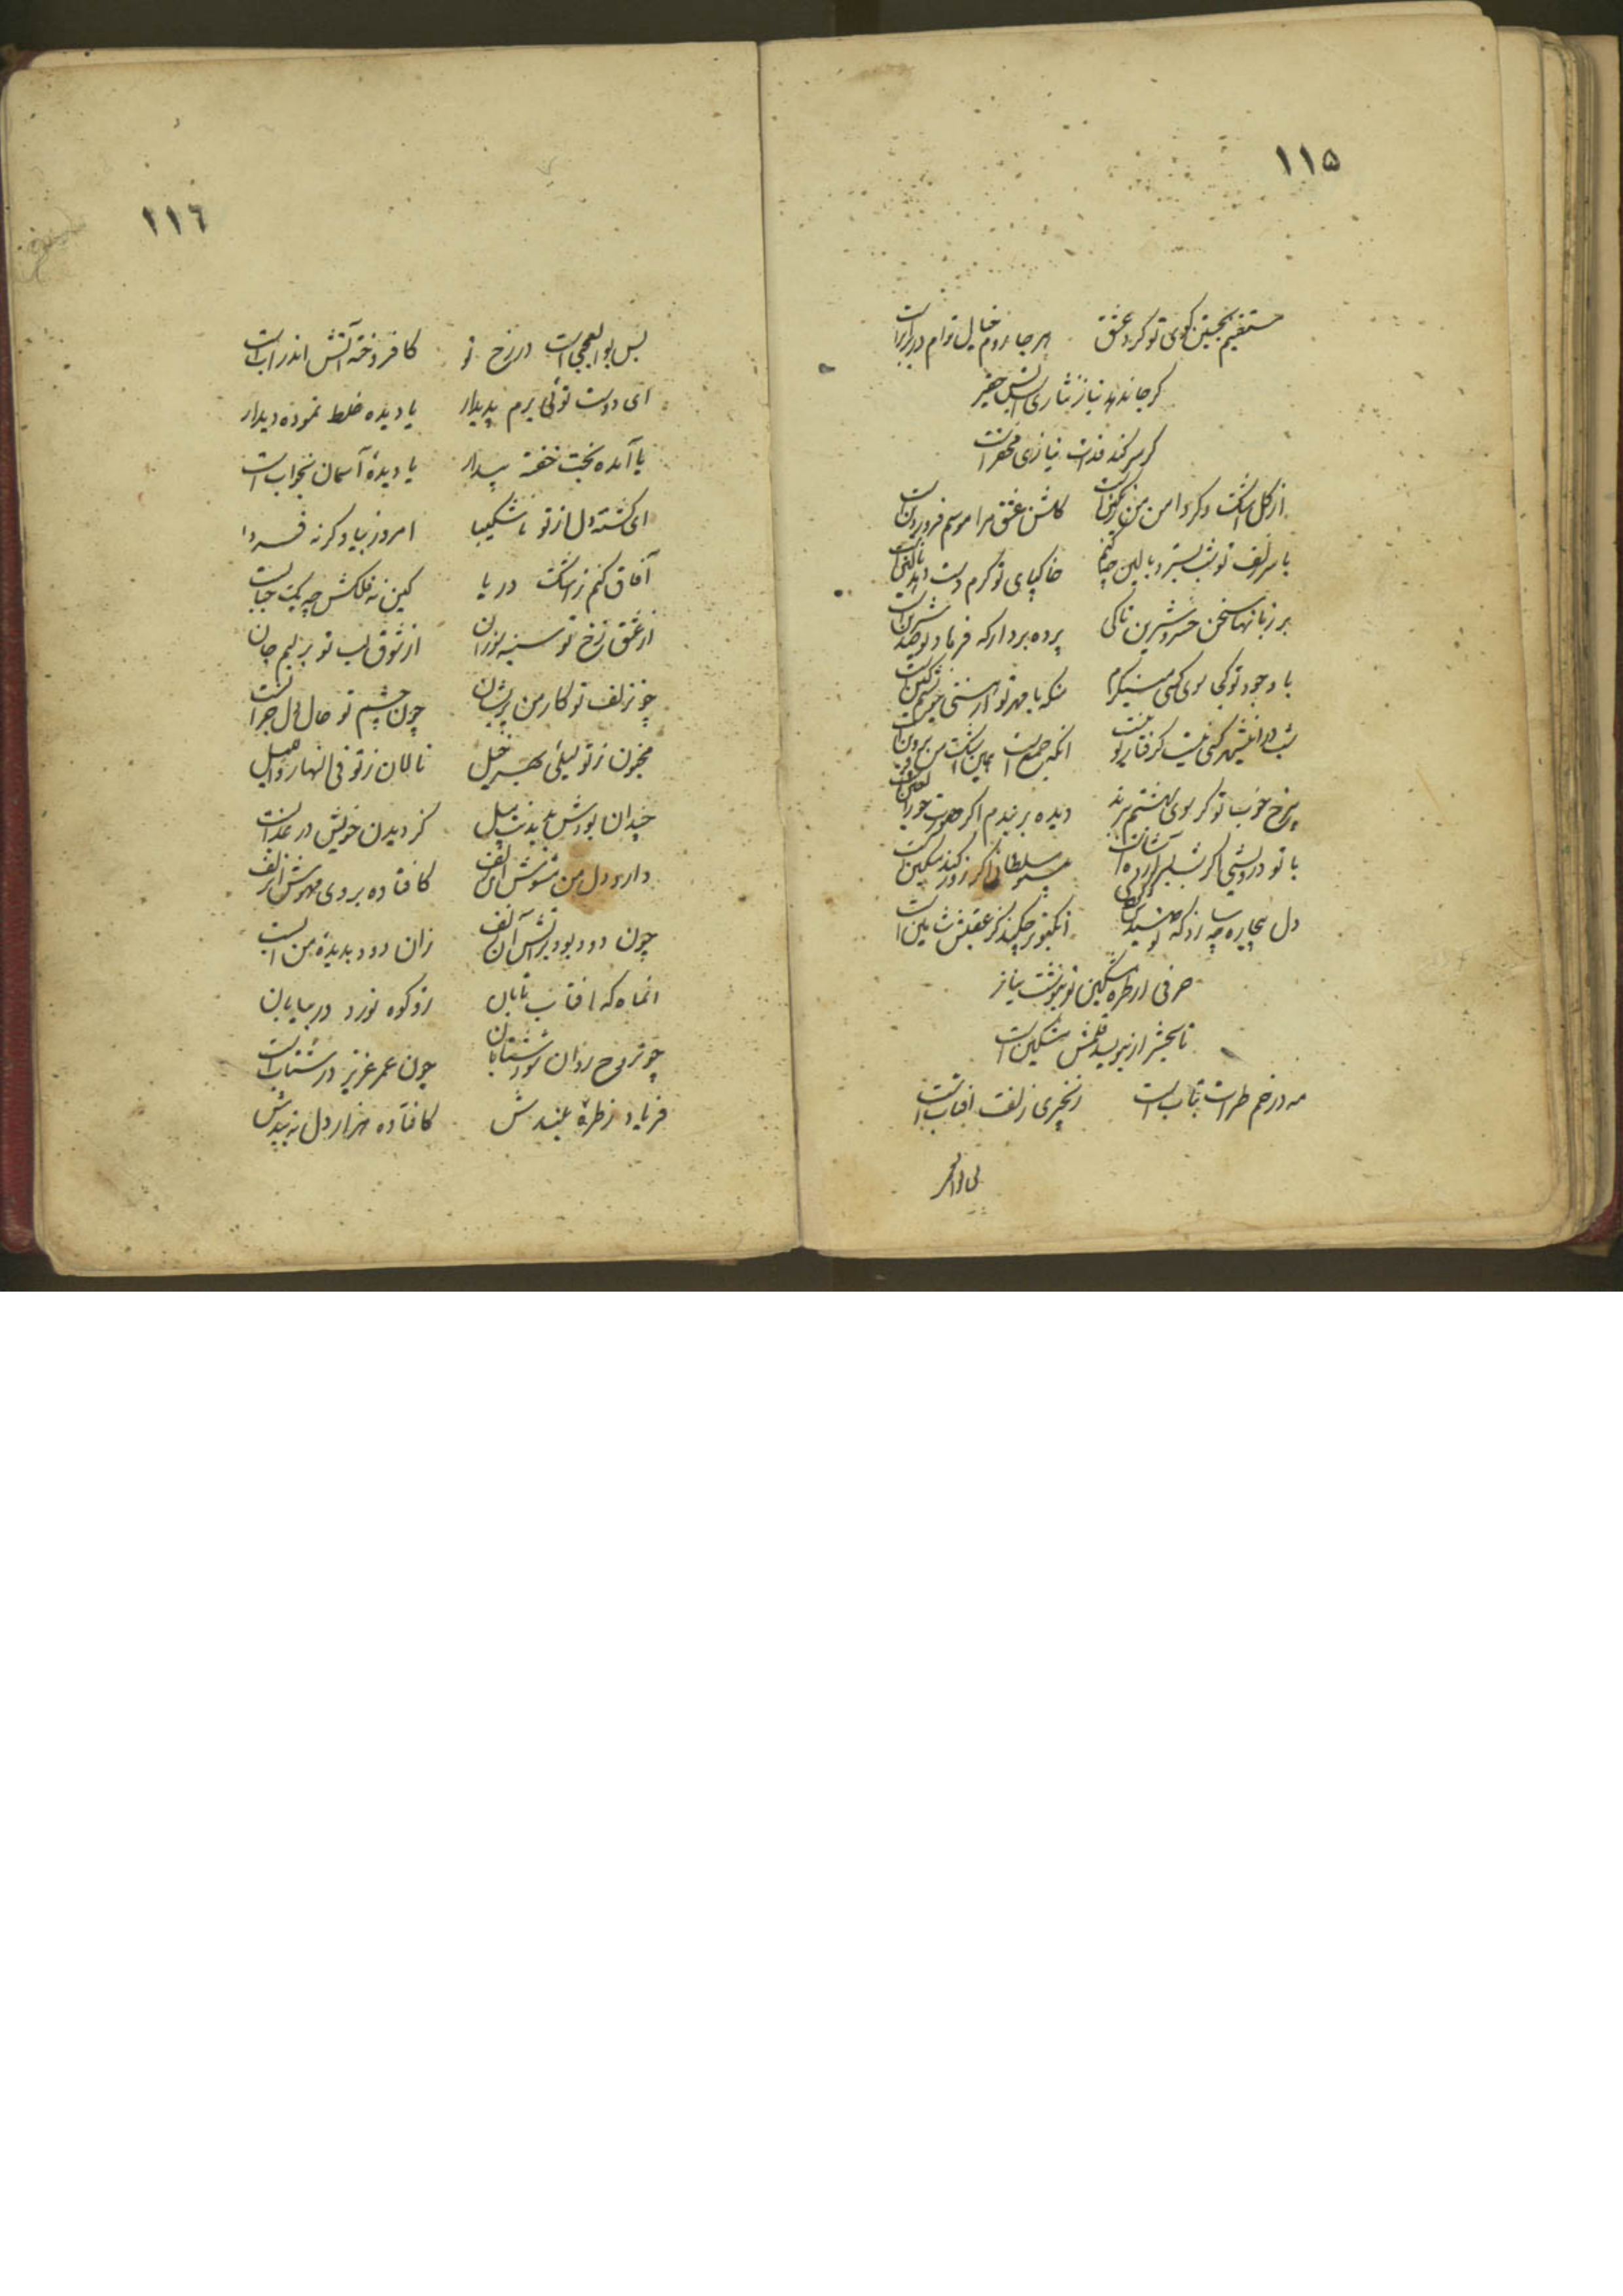 ۱۱۵
مستغنیم بجستن کوی تو کرد عشق هر جا روم خیال توام در برابر است
گر جان دهد نیاز نثاری است بس حقیر
گر سر کند فدات نیازی محقر است
از گل اشک دگر دامن من رنگین است گلشن عشق مرا موسم فروردین است
با سر زلف تو شب بستر و بالین چکنم خاک پای تو گرم دست دهد بالین است
بر زبانها سخن خسرو و شیرین تا کی پرده بردار که فرهاد تو صد شیرین است
با وجود تو کجا سوی کسی مینگرم منکه با مهر تو از هستی خویشم کین است
شب در اندیشه کسی نیست گرفتار تو نیست انکه جمع است همین اشک من پروین است
بی رخ خوب تو گر سوی بهشتم ببرند دیده بر بندم اگر صورت حور العین است
با تو درویشی اگر شب بسر آورده است سلطانی اگر زور کند مسکین است
دل بیچاره چه سازد که کبوتر چکند کز عقبش شاهین است
حرفی از طره مشکین تو بنوشت نیاز
تا بحشر ار بنویسد قلمش مشکین است
مه در خم طره‌ات بتاب است زنجیری زلفت افتاب است
۱۱۶
بس بوالعجبی است در رخ تو کافروخته آتش اندر آب است
ای دوست توئی برم پدیدار یا دیده غلط نموده دیدار
یا آمده بخت خفته بیدار یا دیدهٔ آسمان بخواب است
ای گشته دل از تو ناشکیبا امروز بیا و گرنه فردا
آفاق کنم ز اشک دریا کین نه فلکش چو یک حباب است
از عشق رخ تو سینه سوزان از شوق لب تو بر لبم جان
چو زلف تو کار من پریشان چون چشم تو حال دل خراب است
مجنون ز تو لیلی بهر خیل نالان ز تو فی النهار و اللیل
چندان بودش بدیدنت میل کز دیدن خویش در عذابست
دارد دل من مشوش آن زلف کافتاده بروی مهوش آن زلف
چون دود بود بر آتش آن زلف زان دود بدیده من آب است
انماه که افتاب تابان زو کوه نورد در بیابان
چو تروح روان شود شتابان چون عمر عزیز در شتاب است
فریاد ز طرهٔ بلندش کافتاده هزار دل به بندش